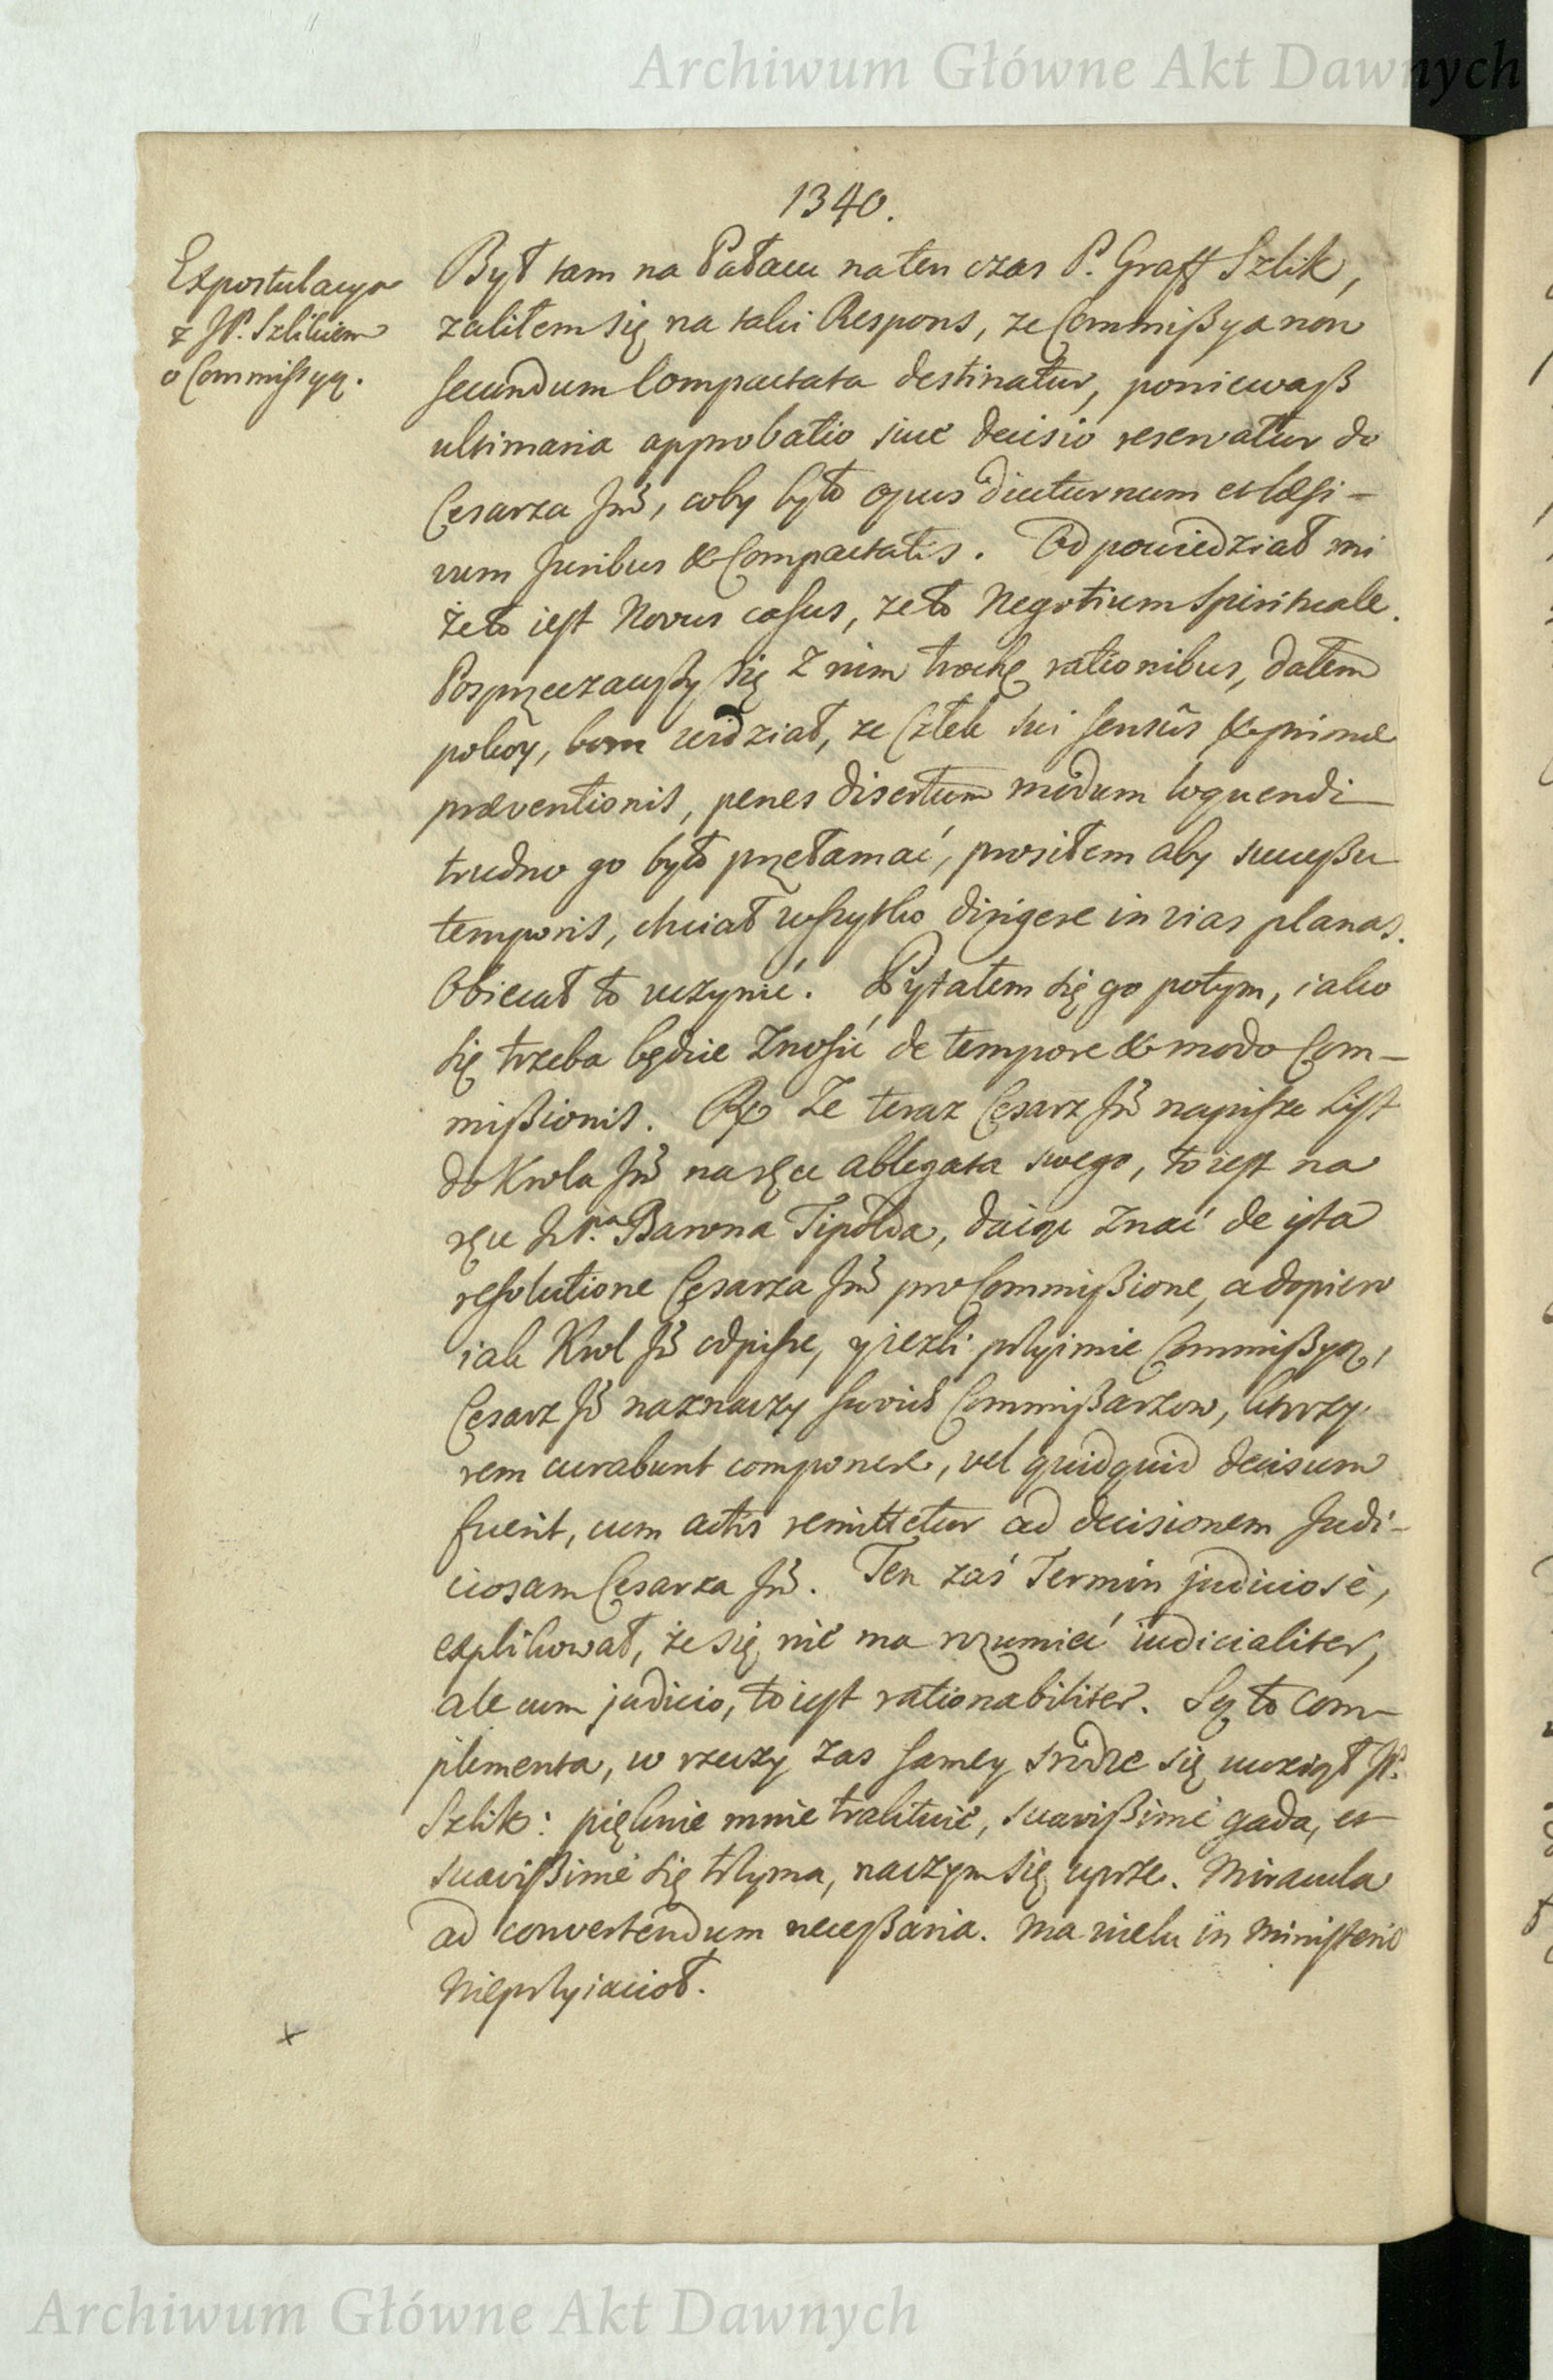 Archiwum Główne Akt Dawnych
1340.
Expostulacya
z JP. Szlikiem
o Commissyą.
Był tam na Pałacu na ten czas P. Graff Szlik,
zaliłem się na taki Respons, ze Commißya non
secundum Compactata destinatur, poniewaß
ultimaria approbatio sive decisio reservatur do
Cesarza Jmć, coby było opus diuturnum et læsi-
vum Juribus & Compactatis. Odpowiedział mi
że to iest Novus casus, ze to Negotium Spirituale.
Posprzeczawszy się z nim trochę rationibus, dałem
pokoy, bom widział, ze Człek sui sensûs & primæ
præventionis, penes disertum modum loquendi
trudno go było przełamać, prosiłem aby successu
temporis, chciał wszytko dirigere in vias planas.
Obiecał to uczynić. Pytałem się go potym, iako
się trzeba będzie znosić de tempore & modo Com-
mißionis. Rx Ze teraz Cesarz Jmć napisze List
do Krola Jmć na ręce Ablegata swego, to iest na
ręce JP.na Barona Tipolda, daiąc znać de ista
resolutione Cesarza Jmć pro Commißione, a dopiero
iak Krol Jmć odpisze, y iezli przyimie Commißyą,
Cesarz Jmć naznaczy swoich Commißarzow, ktorzy
rem curabunt componere, vel quidquid decisum
fuerit, cum actis remittetur ad decisionem Judi-
ciosam Cesarza Jmć. Ten zaś Termin judiciosè,
explikował, że się nie ma rozumieć iudicialiter,
ale cum judicio, to iest rationabiliter. Są to Com-
plimenta, w rzeczy zas samey srodze się uwziął JP.
Szlik: pięknie mnie traktuie, suavißimè gada, et
suavißimè się trzyma, na czym się uprze. Miracula
ad convertendum neceßaria. Ma wielu in Ministerio
Nieprzyiaciół.
Archiwum Główne Akt Dawnych